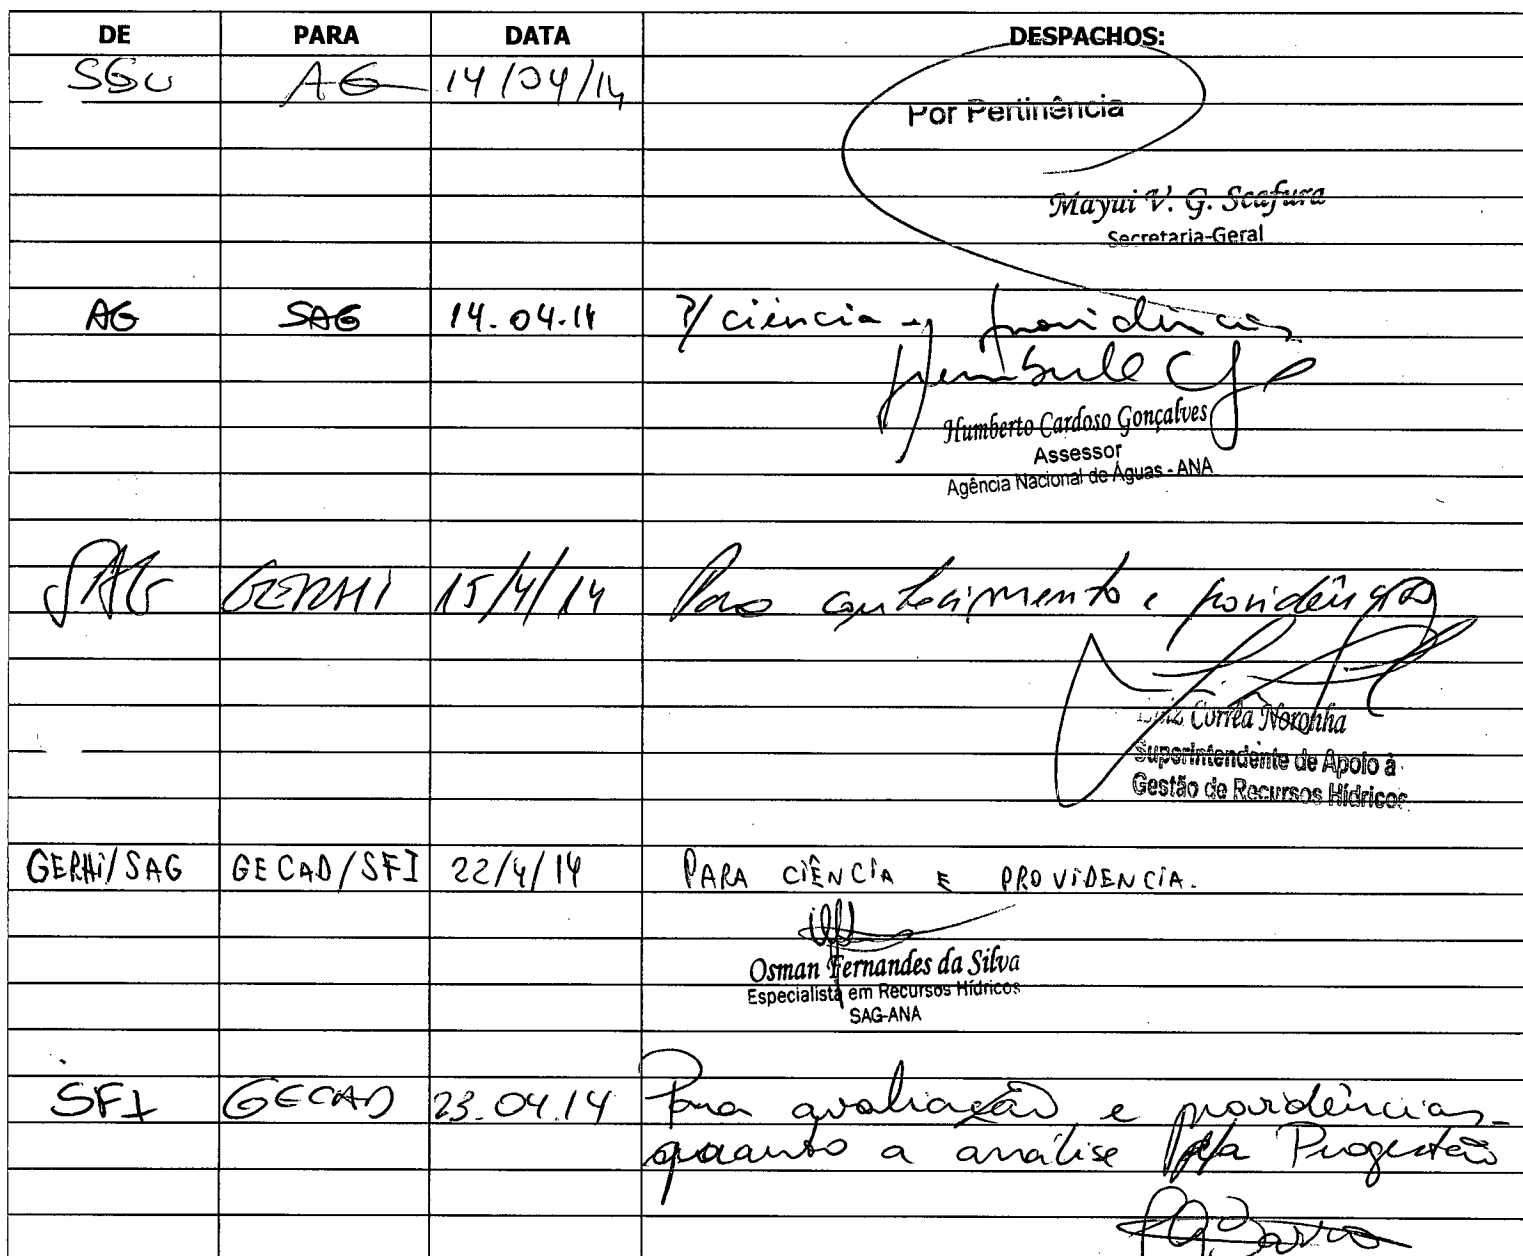 DE PARA DATA DESPACHOS:
SGE AG 14/04/14
Por Pertinência
Mayui V. G. Scafura
Secretaria-Geral
AG SAG 14.04.14 P/ ciência e providências
Humberto Cardoso Gonçalves
Assessor
Agência Nacional de Águas - ANA
SAG GERHI 15/4/14 Para conhecimento e providências
Corrêa Noronha
Superintendente de Apoio à
Gestão de Recursos Hídricos
GERHI/SAG GECAD/SFI 22/4/14 PARA CIÊNCIA E PROVIDENCIA.
Osman Fernandes da Silva
Especialista em Recursos Hídricos
SAG-ANA
SFI GECAD 23.04.14 Para avaliação e providências
quanto a análise Progestão